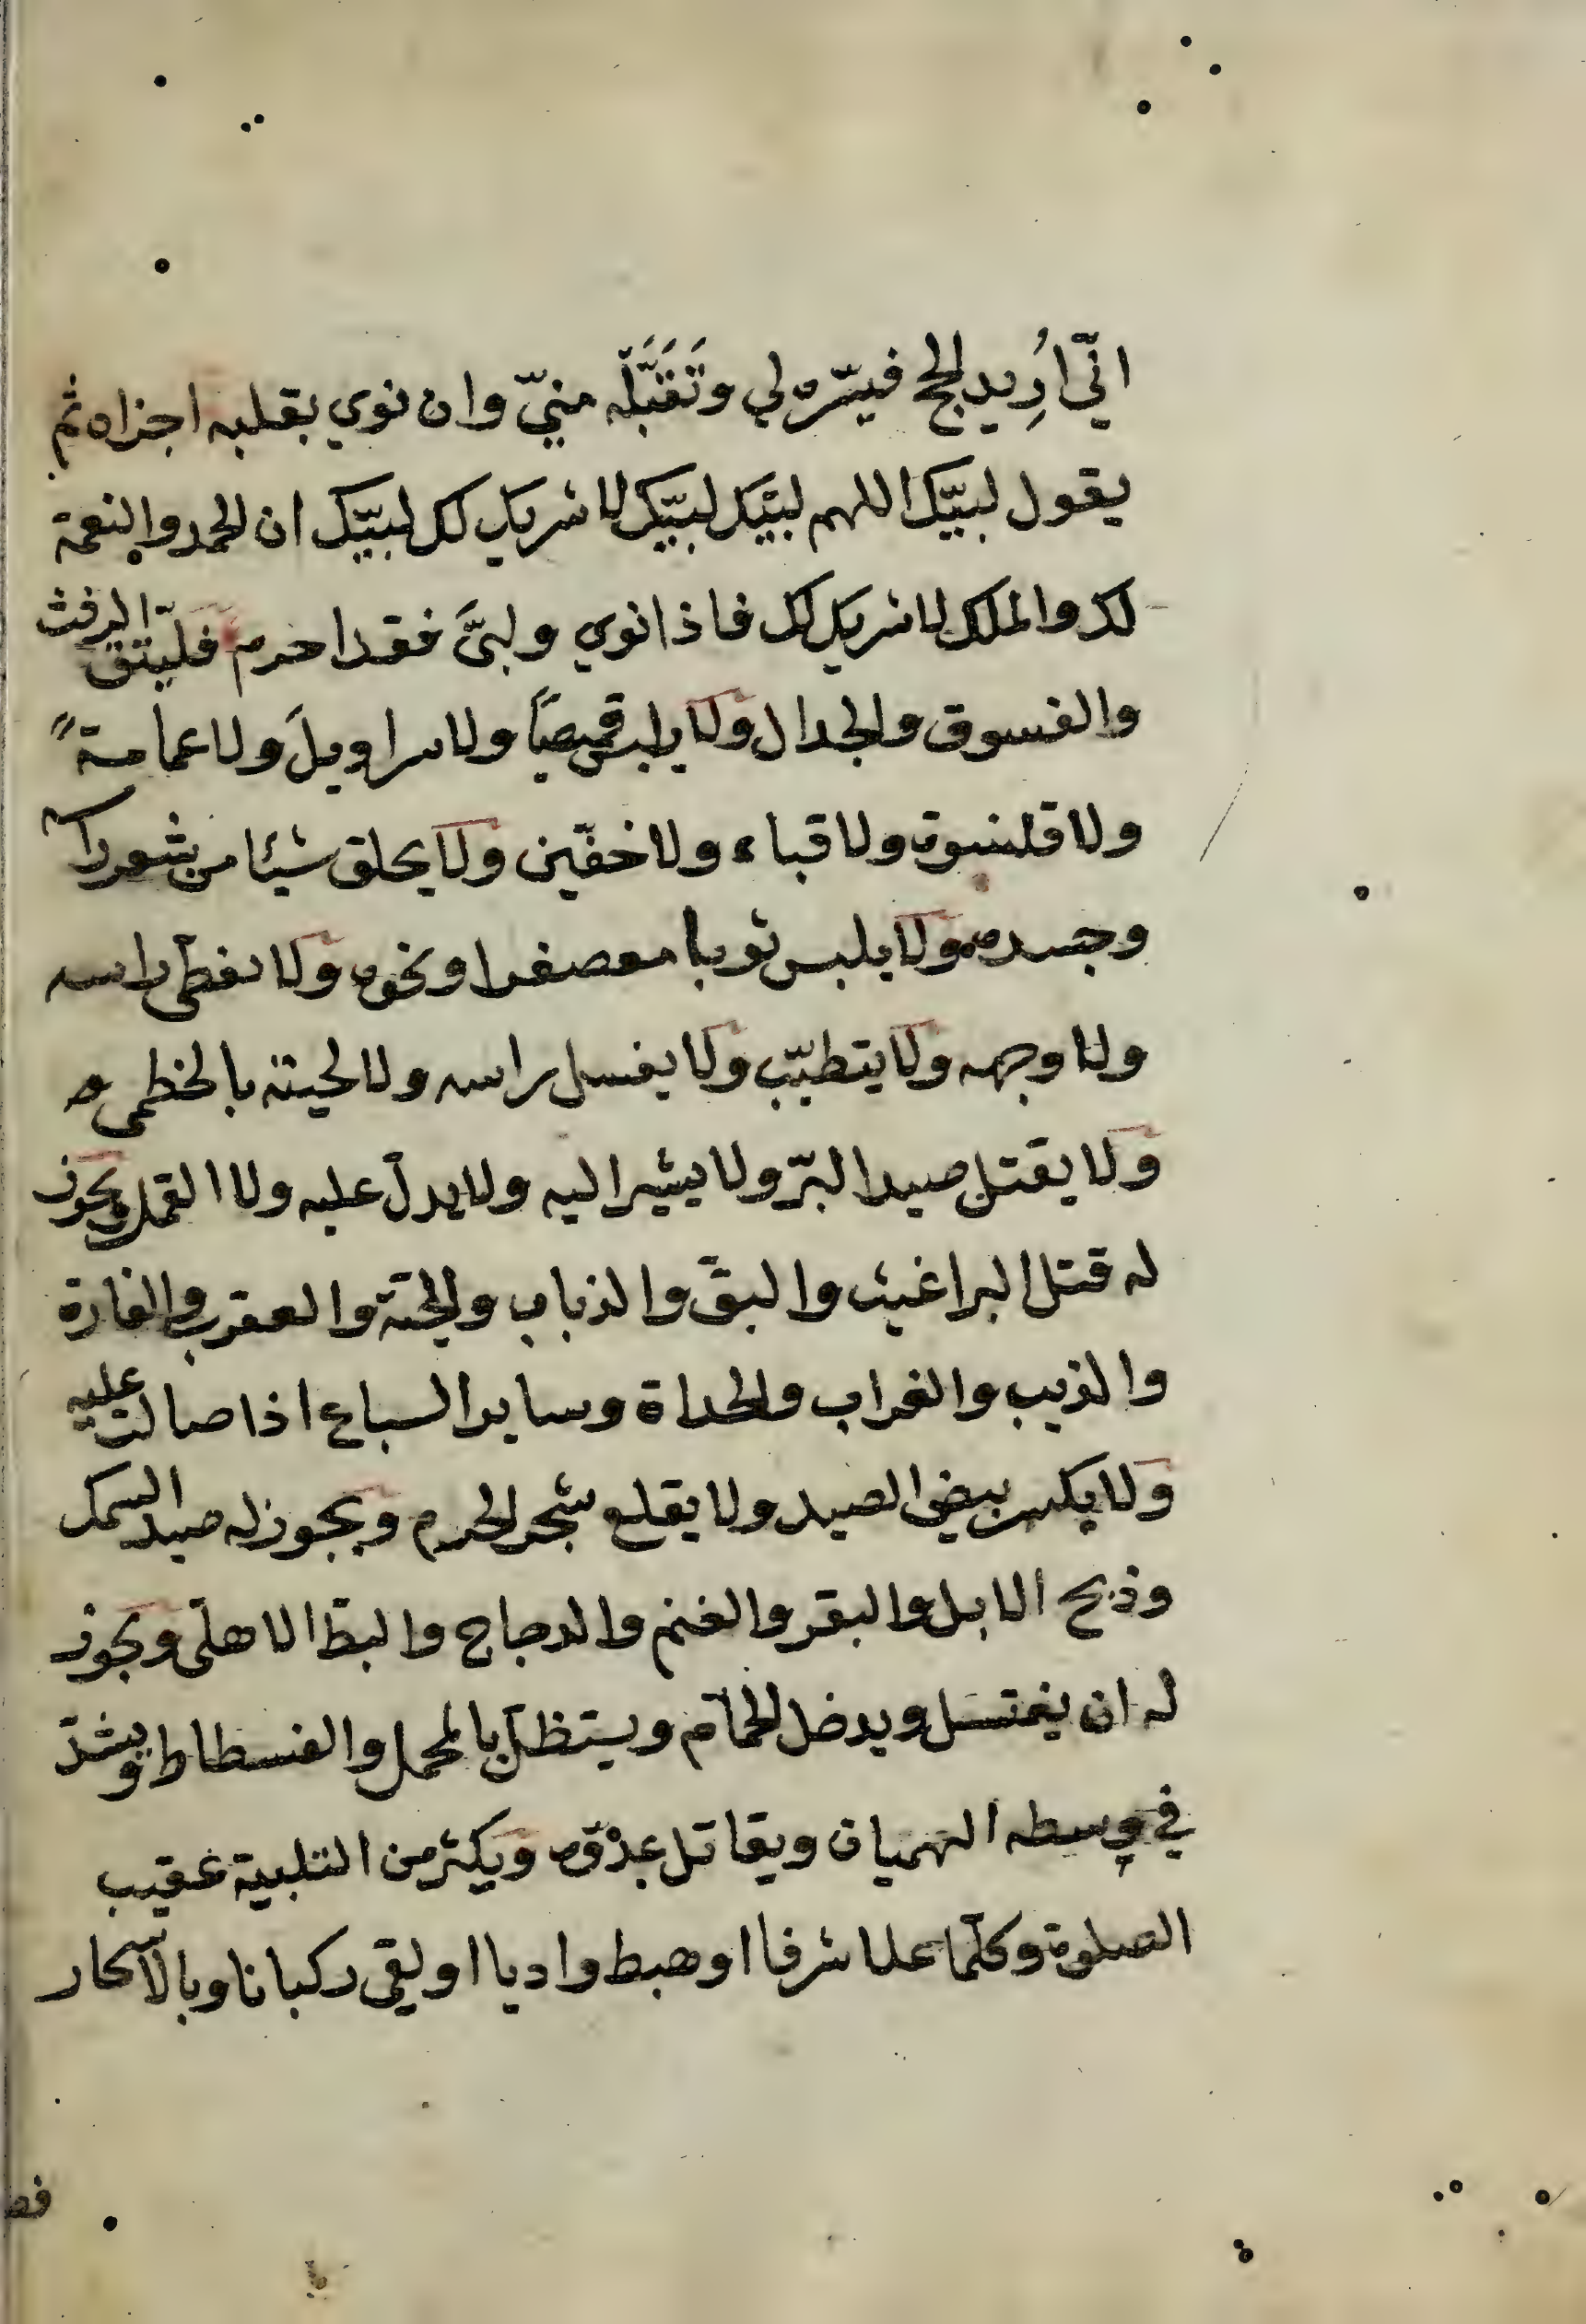 انّي اُرِيد الحج فيسّره لي وتَقَبَّلْه منيّ وان نوي بقلبه اجزاه ثم
يقول لبيّك اللهم لبيّك لبيّك لا شريك لك لبيّك ان الحمد والنعمة
لك والملك لا شريك لك فاذا نوي ولبىَّ فقد احرم فليتّق الرفث
والفسوق والجدال ولا يلبس قميصاً ولا سراويلَ ولا عمامة ً
ولا قلنسوة ولا قباء ولا خفّين ولا يحلق شيئا من شعر راسه
وجسده ولا يلبس ثوبا معصفرا ونحوه ولا يغطّى راسه
ولا وجهه ولا يتطيّب ولا يغسل راسه ولا لحيته بالخطمى
ولا يقتل صيد البرّ ولا يشير اليه ولا يدلّ عليه ولا القمل ويجوز
له قتل البراغيث والبقّ والذباب والحيّة والعقرب والفارة
والذيب والغراب والحداة وساير السباع اذا صالت عليه
ولا يكسر بيض الصيد ولا يقلع شجر الحرم ويجوز له صيد السمك
وذبح الابل والبقر والغنم والدجاج والبطّ الاهلى ويجوز
له ان يغتسل ويدخل الحمّام ويستظلّ بالمحمل والفسطاط ويشدّ
في وسطه الهميان ويقاتل عدوّه ويكثر من التلبية عقيب
الصلوة وكلّما علا شرفا او هبط واديا او لقى ركبانا وبالاسحار
فص